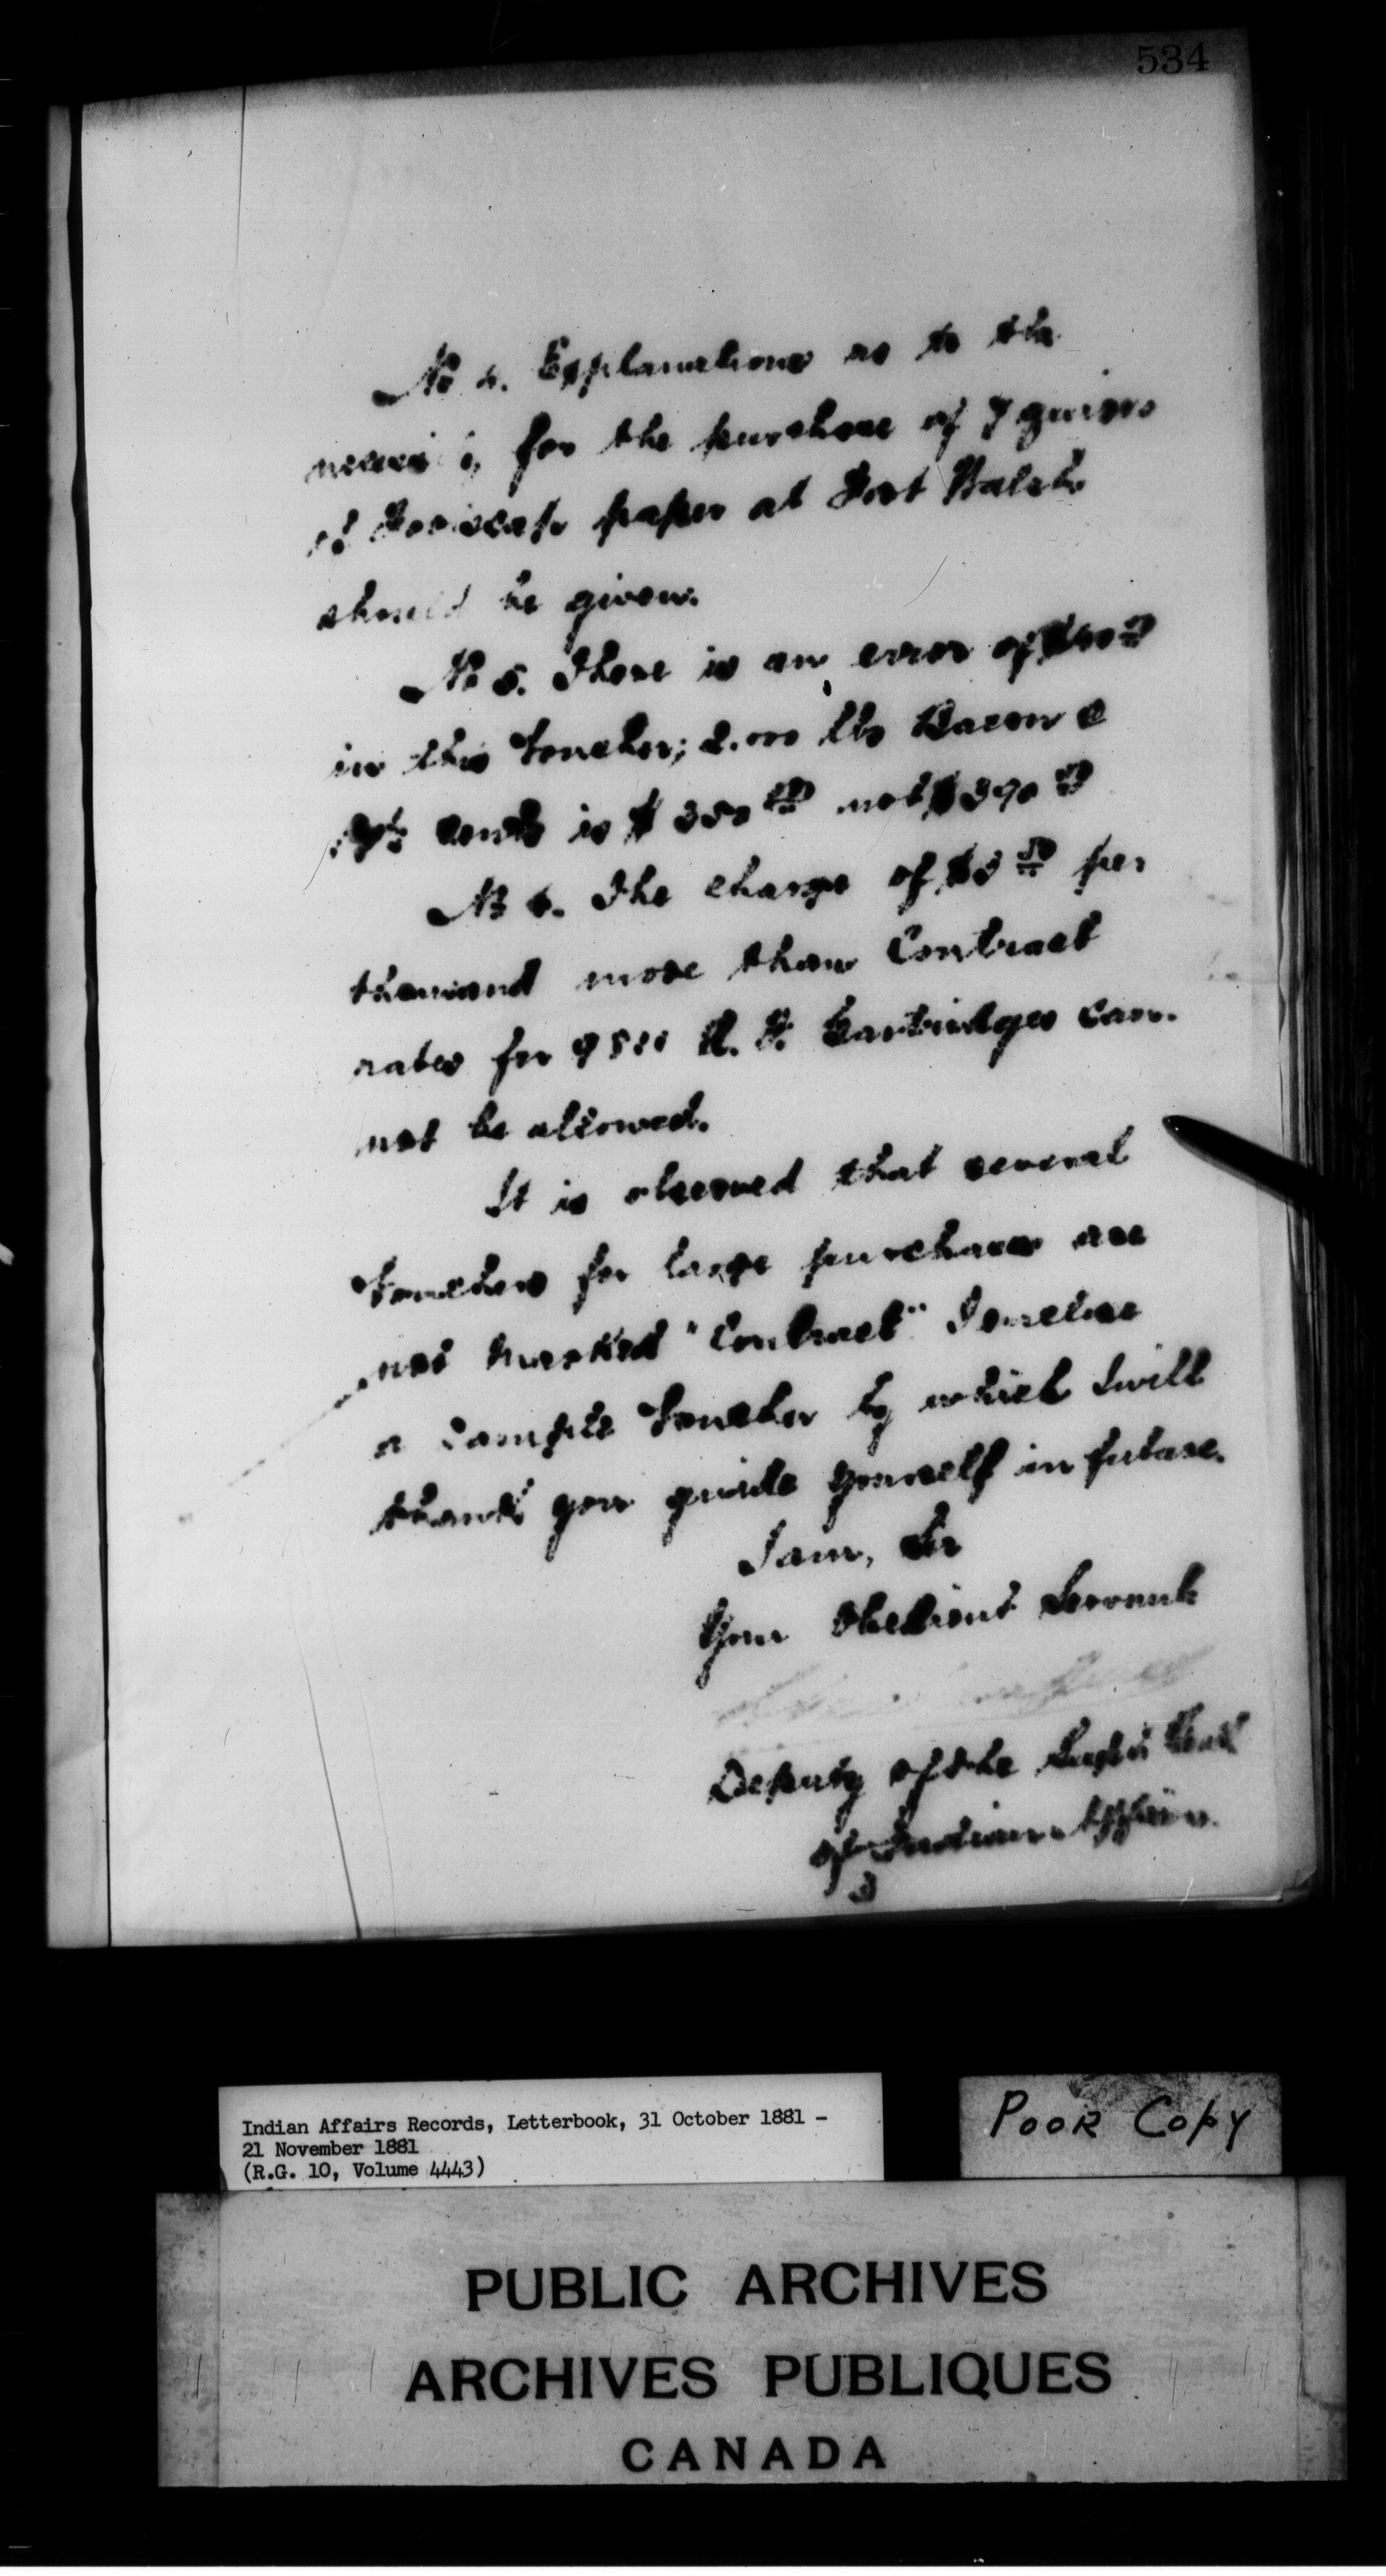 534
No 4. Explanations as to the
for the purchase of 7 quires
of Foolscap paper at Fort Walsh
should be given.
No 5. There is an error of $40 00
in this Voucher; 2.000 lbs Bacon @
17½ cents is $350 00 not $390 00
No 6. The charge of $3 50 per
thousand more than Contract
rates for R. F. Cartridges can-
not be allowed.
It is observed that several
Vouchers for large purchases are
not marked "Contract" I enclose
a Sample Voucher by which I will
thank you guide yourself in future.
I am, Sir
Your Obedient Servant
Deputy of the Supt Genl
of Indian Affairs.
Indian Affairs Records, Letterbook, 31 October 1881 -
21 November 1881
(R.G. 10, Volume 4443)
POOR COPY
PUBLIC ARCHIVES
ARCHIVES PUBLIQUES
CANADA